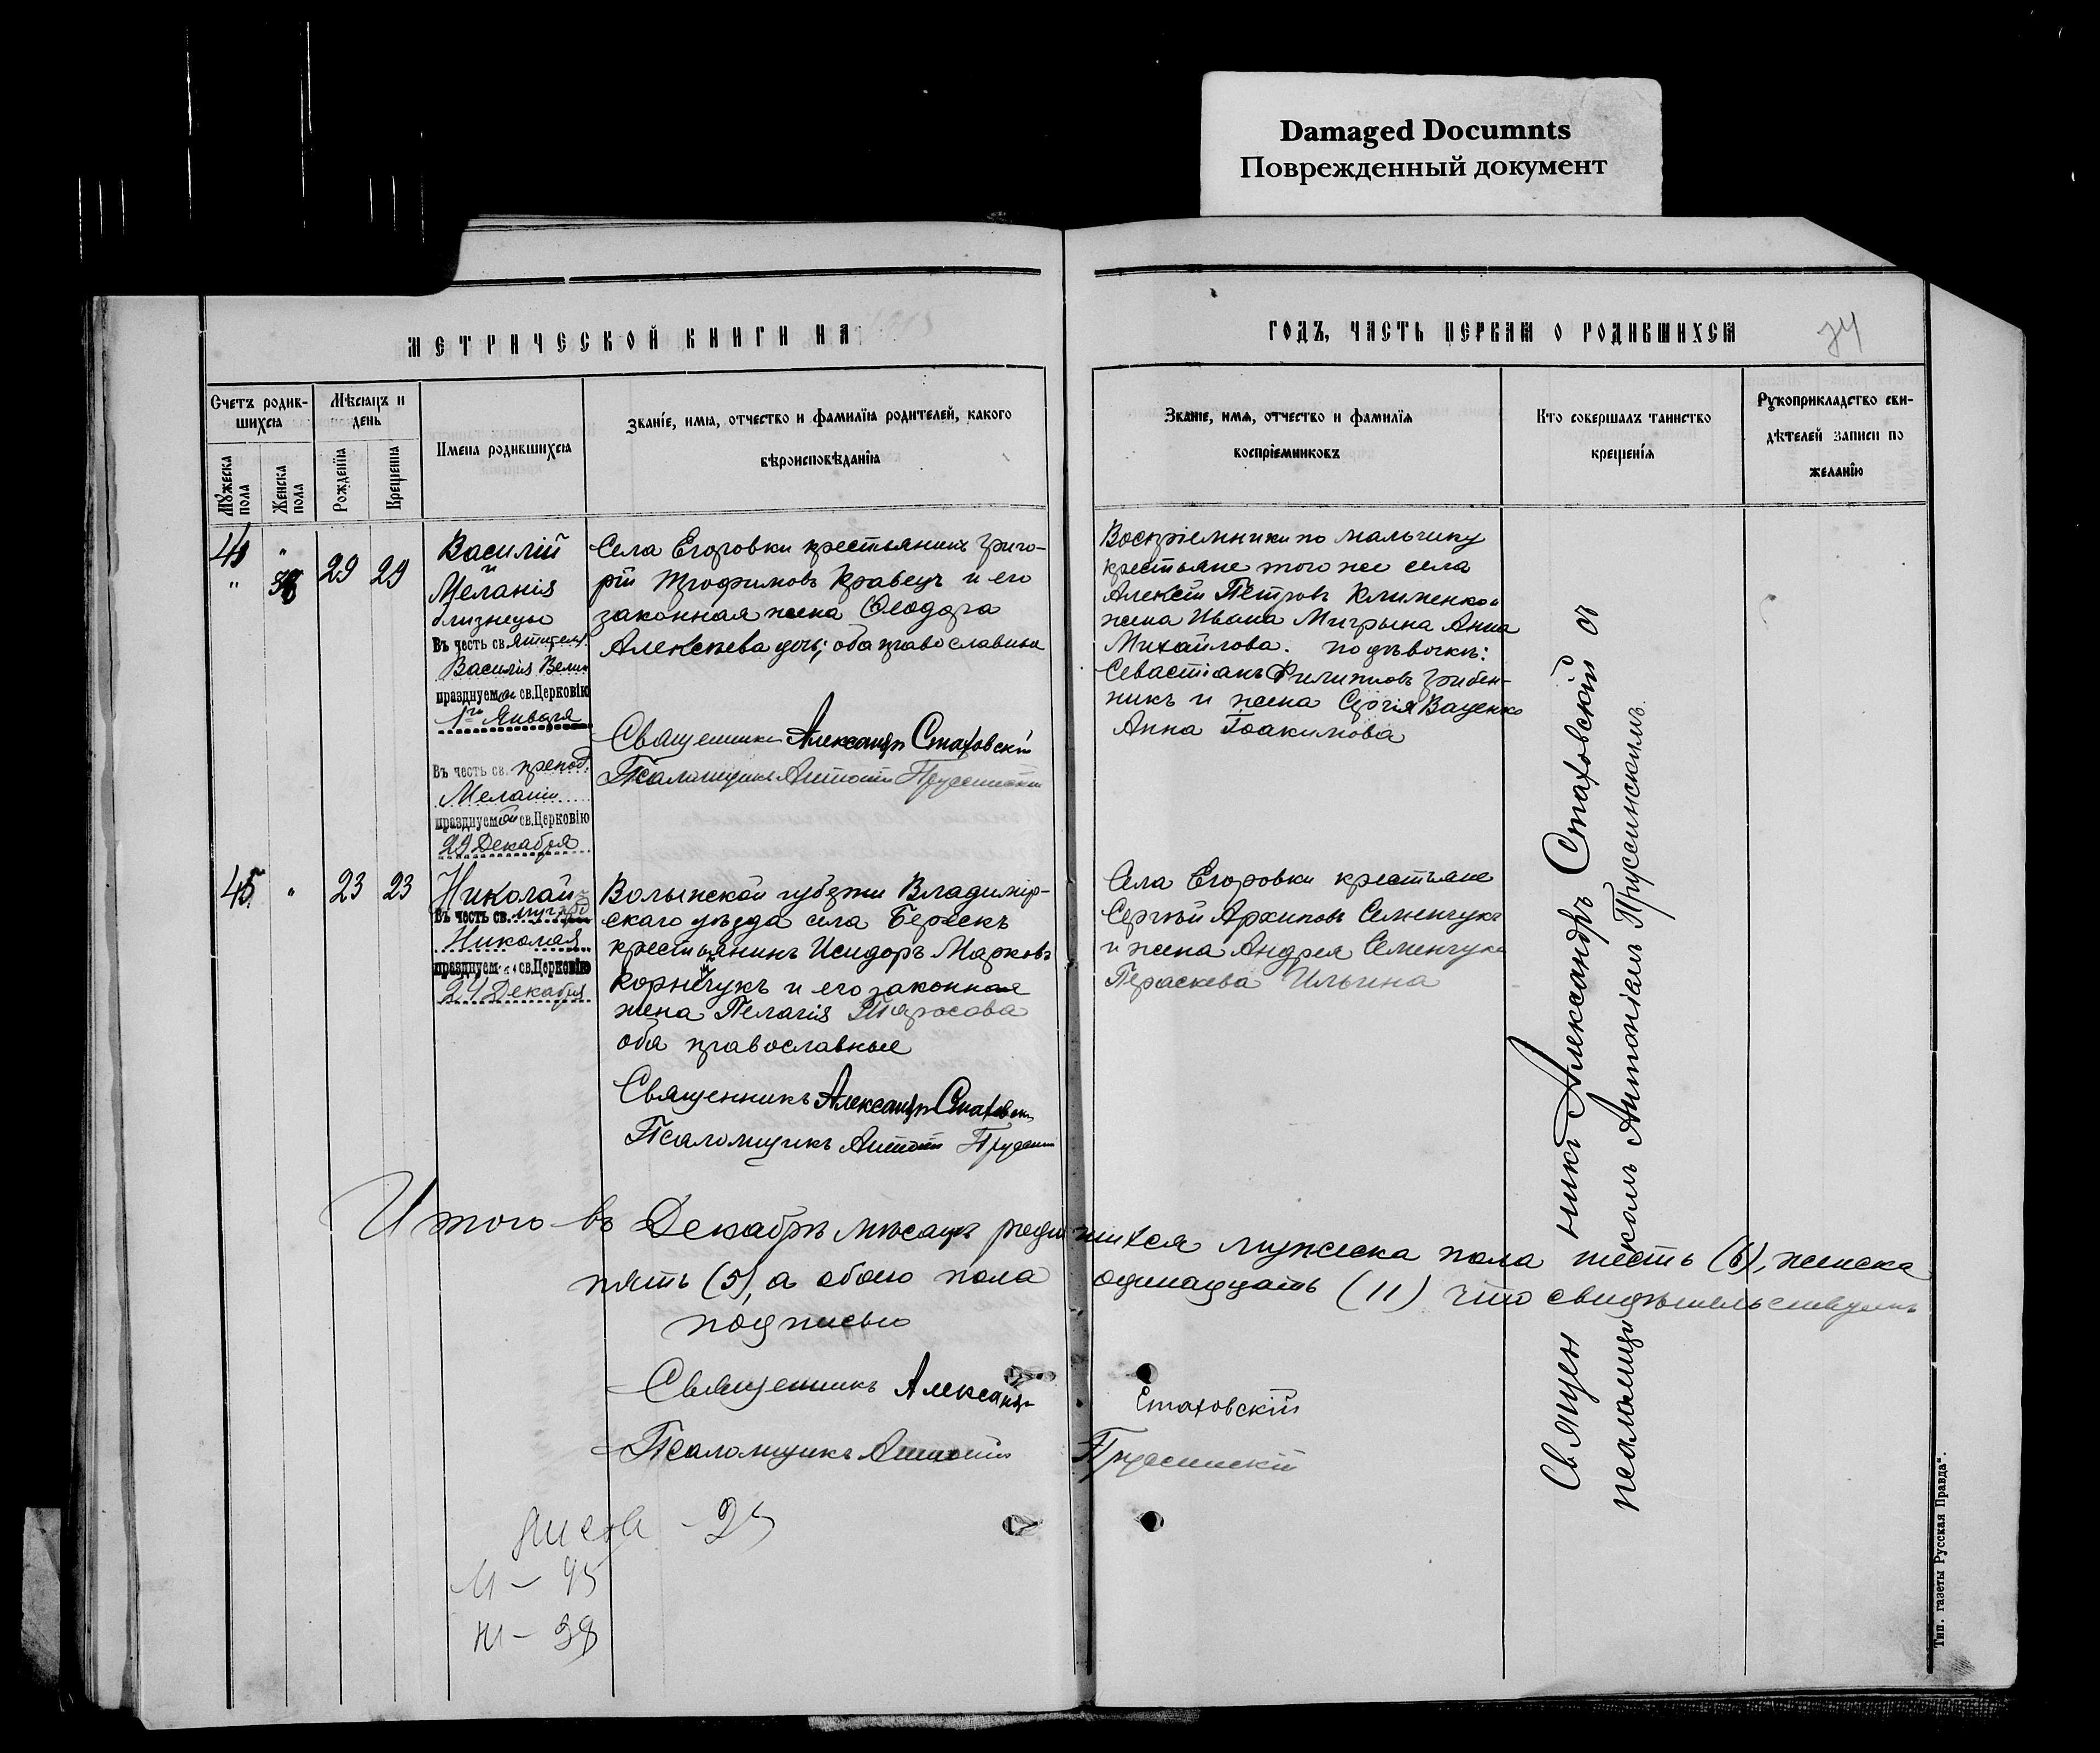 Damaged Documnts
Поврежденный документ
МЕТРИЧЕСКОЙ КНИГИ НА
ГОДЪ, ЧАСТЬ ПЕРВАЯ О РОДИВШИХСЯ
74
Счетъ родив-
шихся
Мужеска пола
Женска пола
Мѣсяцъ и
день
Рожденія
Крещенія
Имена родившихся
Званіе, имя, отчество и фамилія родителей, какого
вѣроисповѣданія
Званіе, имя, отчество и фамилія
воспріемниковъ
Кто совершалъ таинство
крещенія
Рукоприкладство сви-
дѣтелей записи по
желанію
44 "
" 38
29 29
Василій
и
Меланія
близнецы
Въ честь св. святителя
Василія Велик
празднуем. св. Церковію
1го Января
Въ честь св. препод.
Меланіи
празднуемой св. Церковію
29 Декабря
Села Егоровки крестьянинъ Григо-
рій Трофимовъ Кравецъ и его
законная жена Ѳеодора
Алексѣева дочь; оба православные
Священникъ Александръ Стаховскій
Псаломщикъ Антоній Пруссинскій
Воспріемники по мальчику
крестьяне того же села
Алексѣй Петровъ Клименко и
жена Ивана Мигрына Анна
Михайлова. по дѣвочкѣ:
Севастіанъ Филипповъ Грибен-
никъ и жена Сергія Ваценко
Анна Іоакимова
45 " 23 23
Николай
Въ честь св. муч.
Николая
празднуем. св. Церковію
24 Декабря
Волынской губерніи Владимір-
скаго уѣзда села Березкъ
крестьянинъ Исидоръ Марковъ
Корнійчукъ и его законная
жена Пелагія Тарасова
оба православные
Священникъ Александръ Стаховскій
Псаломщикъ Антоній
Села Егоровки крестьяне
Сергѣй Архиповъ Семенчукъ
и жена Андрея Семенчука
Параскева Ильина
Священникъ Александръ Стаховскій съ
псаломщикомъ Антоніемъ Пруссинскимъ
Итого въ Декабрѣ мѣсяцѣ родившихся мужеска пола шесть (6), женска
пять (5), а обоего пола одинадцать (11) что свидѣтельствуемъ
подписью
Священникъ Александръ Стаховскій
Псаломщикъ Антоній Пруссинскій
листа - 25
М - 45
Ж - 38
Тип. газеты Русская Правда".